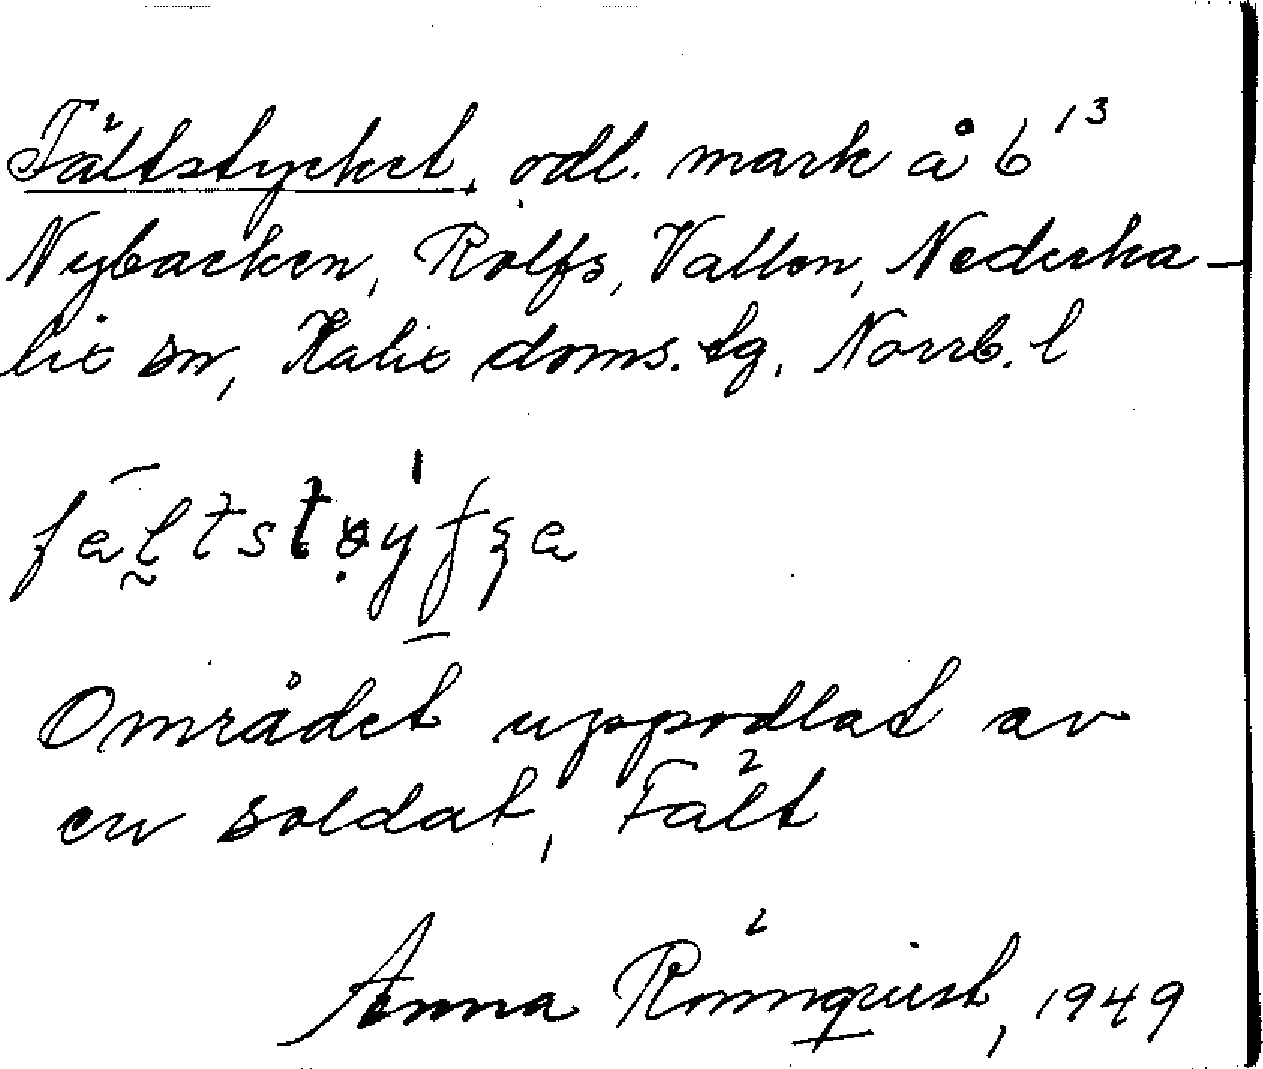 Fältstycket, odl. mark å 6¹³
Nybacken, Rolfs, Vallen, Nederka-
lix sn, Kalix doms. tg, Norrb. l
Området uppodlat av
en soldat, Fält
Anna Rönnqvist, 1949